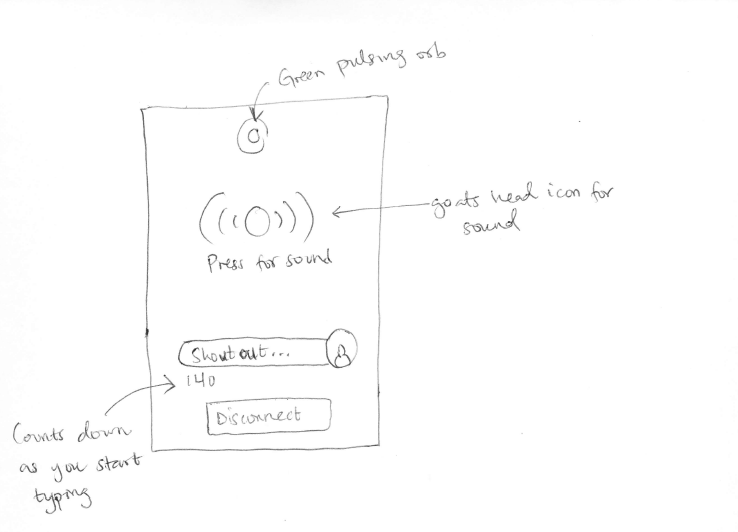 Green pulsing orb
goats head icon for
sound
Press for sound
Shout out...
140
Disconnect
Counts down
as you start
typing